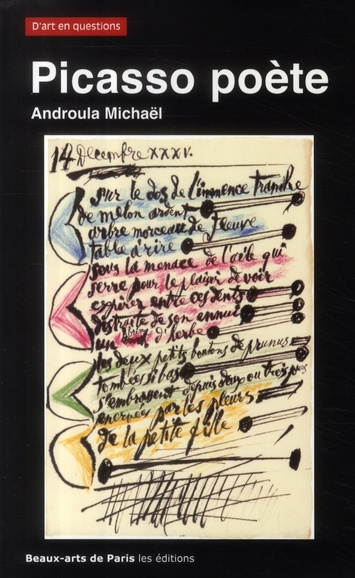 D'art en questions
Picasso poète
Androula Michaël
14 Decembre XXXV.
sur le dos de l'immence tranche
de melon ardent
arbre morceau de fleuve
table à rire
sous la menace de l'aile qui
serre pour le plaisir de voir
expirer entre ces dents
distraite de son ennui
un brin d'herbe
les deux petits boutons de prunus
tombés si bas
s'embrassent depuis deux ou trois
par les pleurs
de la petite fille
Beaux-arts de Paris les éditions